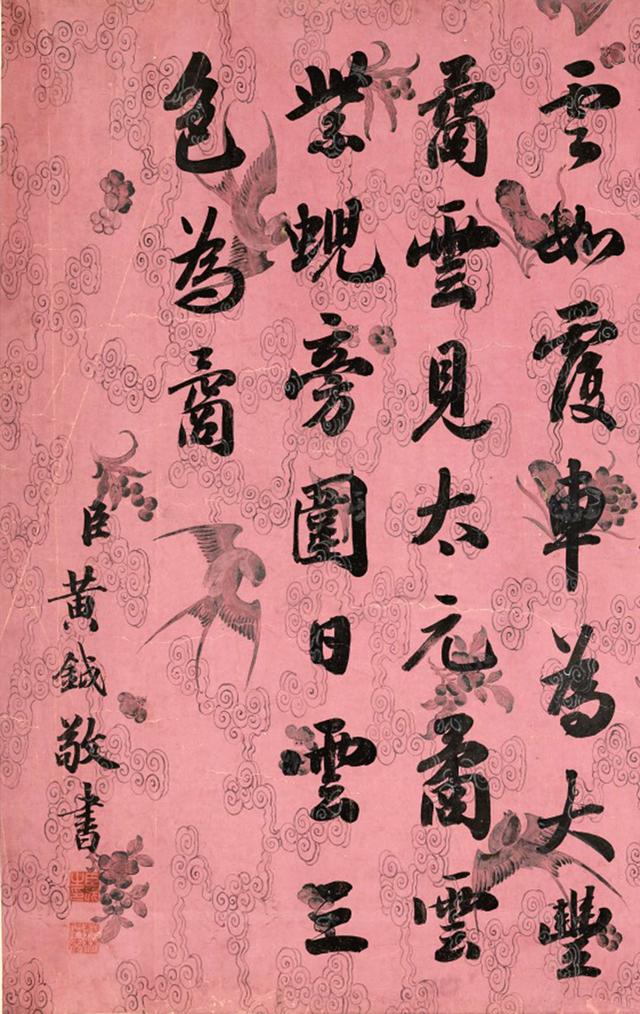 雲如覆車為大豐
矞雲見太元矞雲
紫蜺旁圍日雲三
色為矞
臣黃鉞敬書